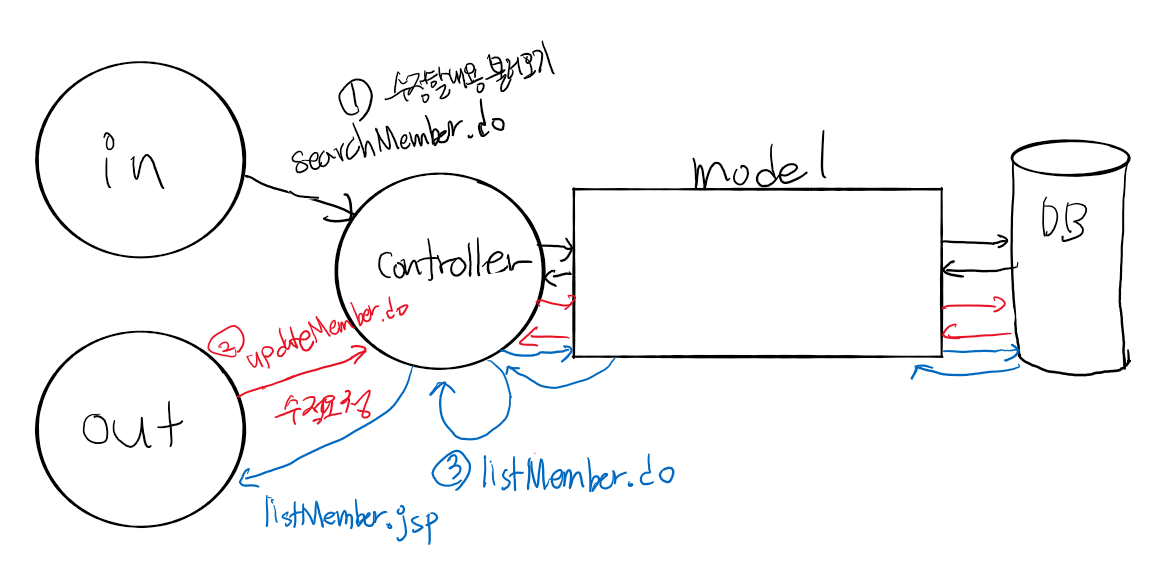 ① 수정할내용불러오기
searchMember.do
in
model
DB
controller
② updateMember.do
수정요청
out
③ listMember.do
listMember.jsp